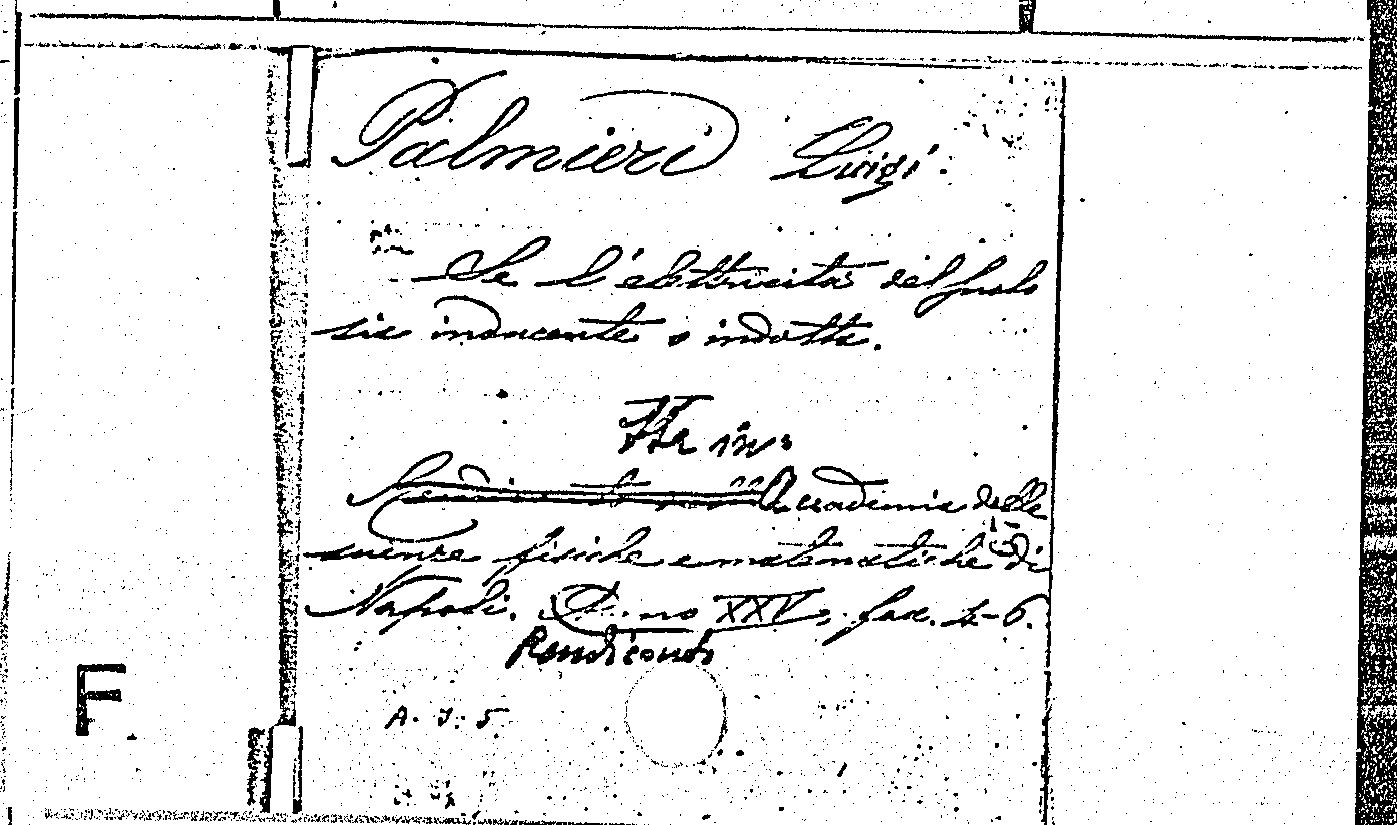 Palmieri Luigi.
Se l'elettricità del suolo
sia inducente o indotta.
Sta in:
Rendiconto dell'Accademia delle
scienze fisiche e matematiche di
Napoli. Anno XXV, fasc. 4-6.
Rendiconti
A. J. 5
F.